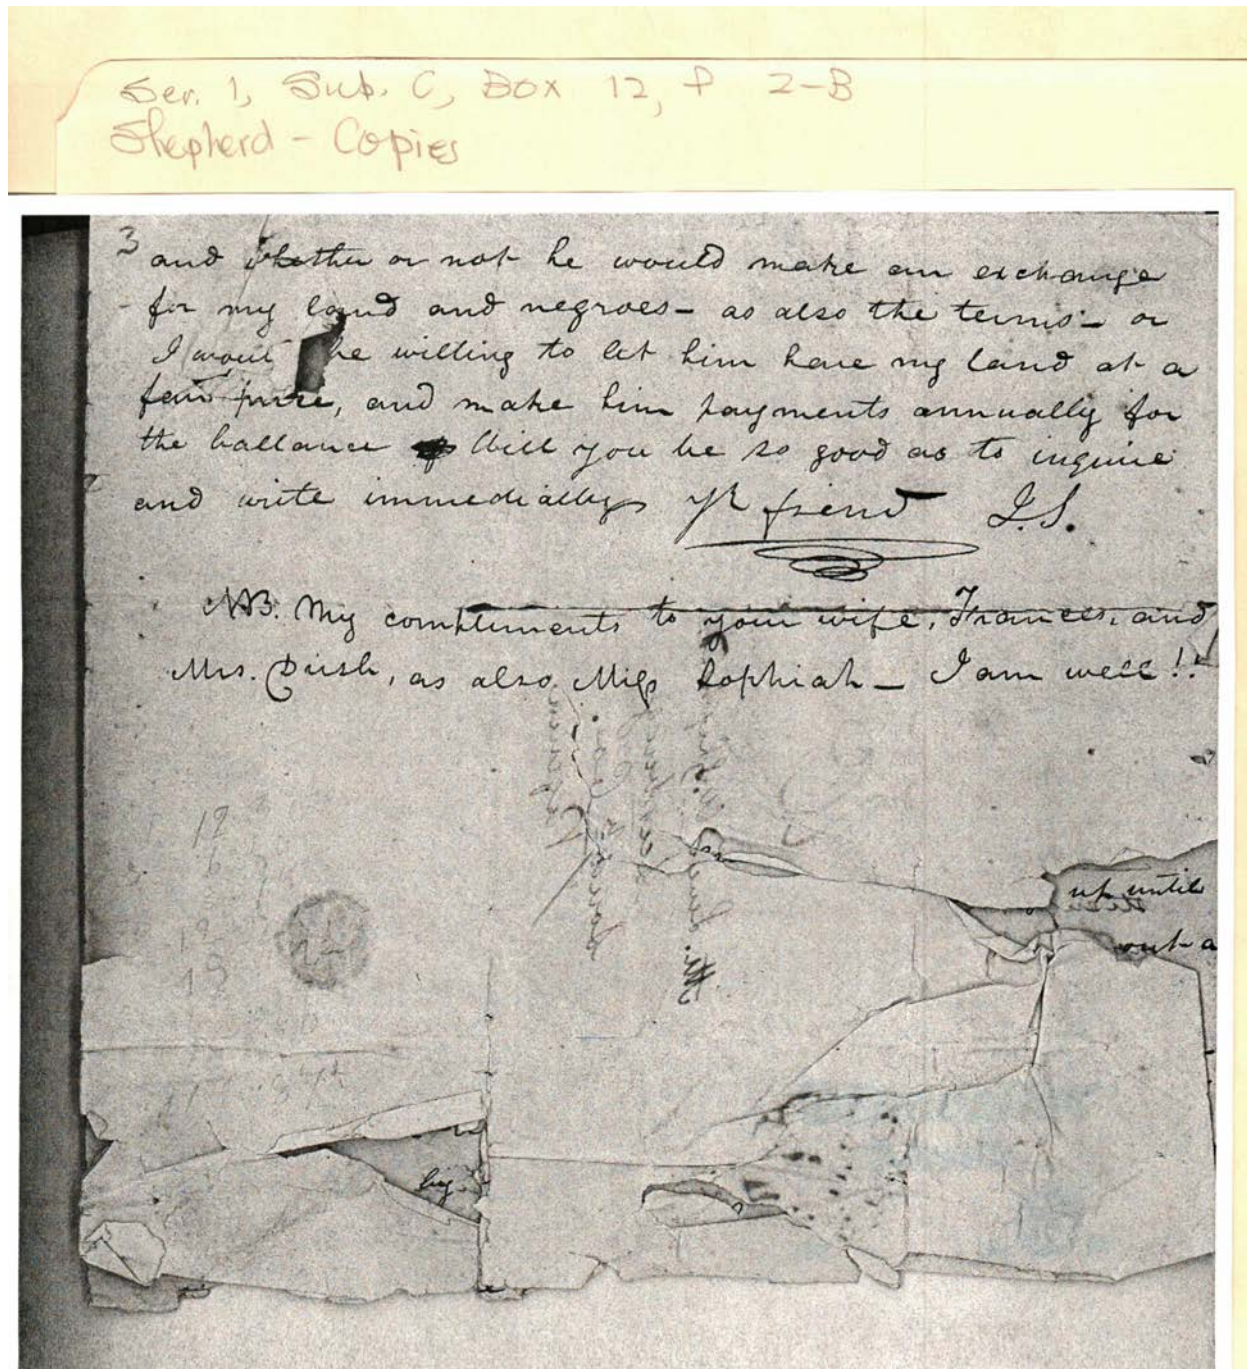 Ser. 1, Sub. C, Box 12, f 2-B
Shepherd - Copies
3
and whether or not he would make an exchange
for my land and negroes - as also the terms - or
I woul be willing to let him have my land at a
fair price, and make him payments annually for
the ballance Will you be so good as to inquire
and write immediatley yr friend J.S.
NB. My compliments to your wife, Frances, and
Mrs. Dish, as also Miss Sophiah - I am well!!
up until
out a
12
6
12